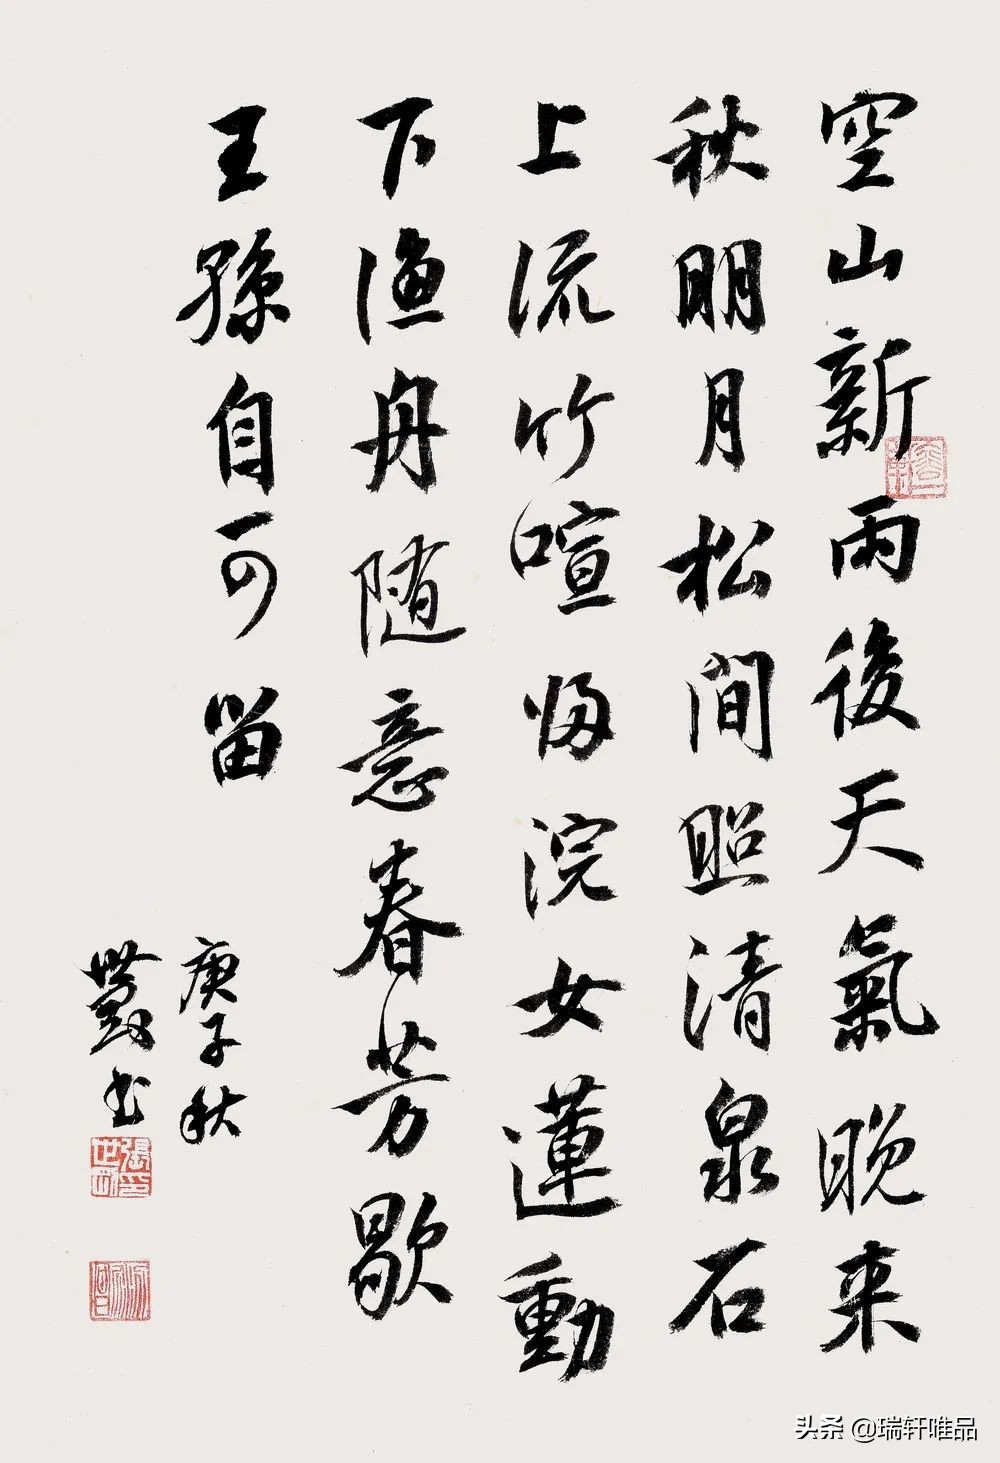 空山新雨後天氣晚来
秋明月松間照清泉石
上流竹喧归浣女蓮動
下渔舟随意春芳歇
王孫自可留
庚子秋
世书
头条 @瑞轩唯品